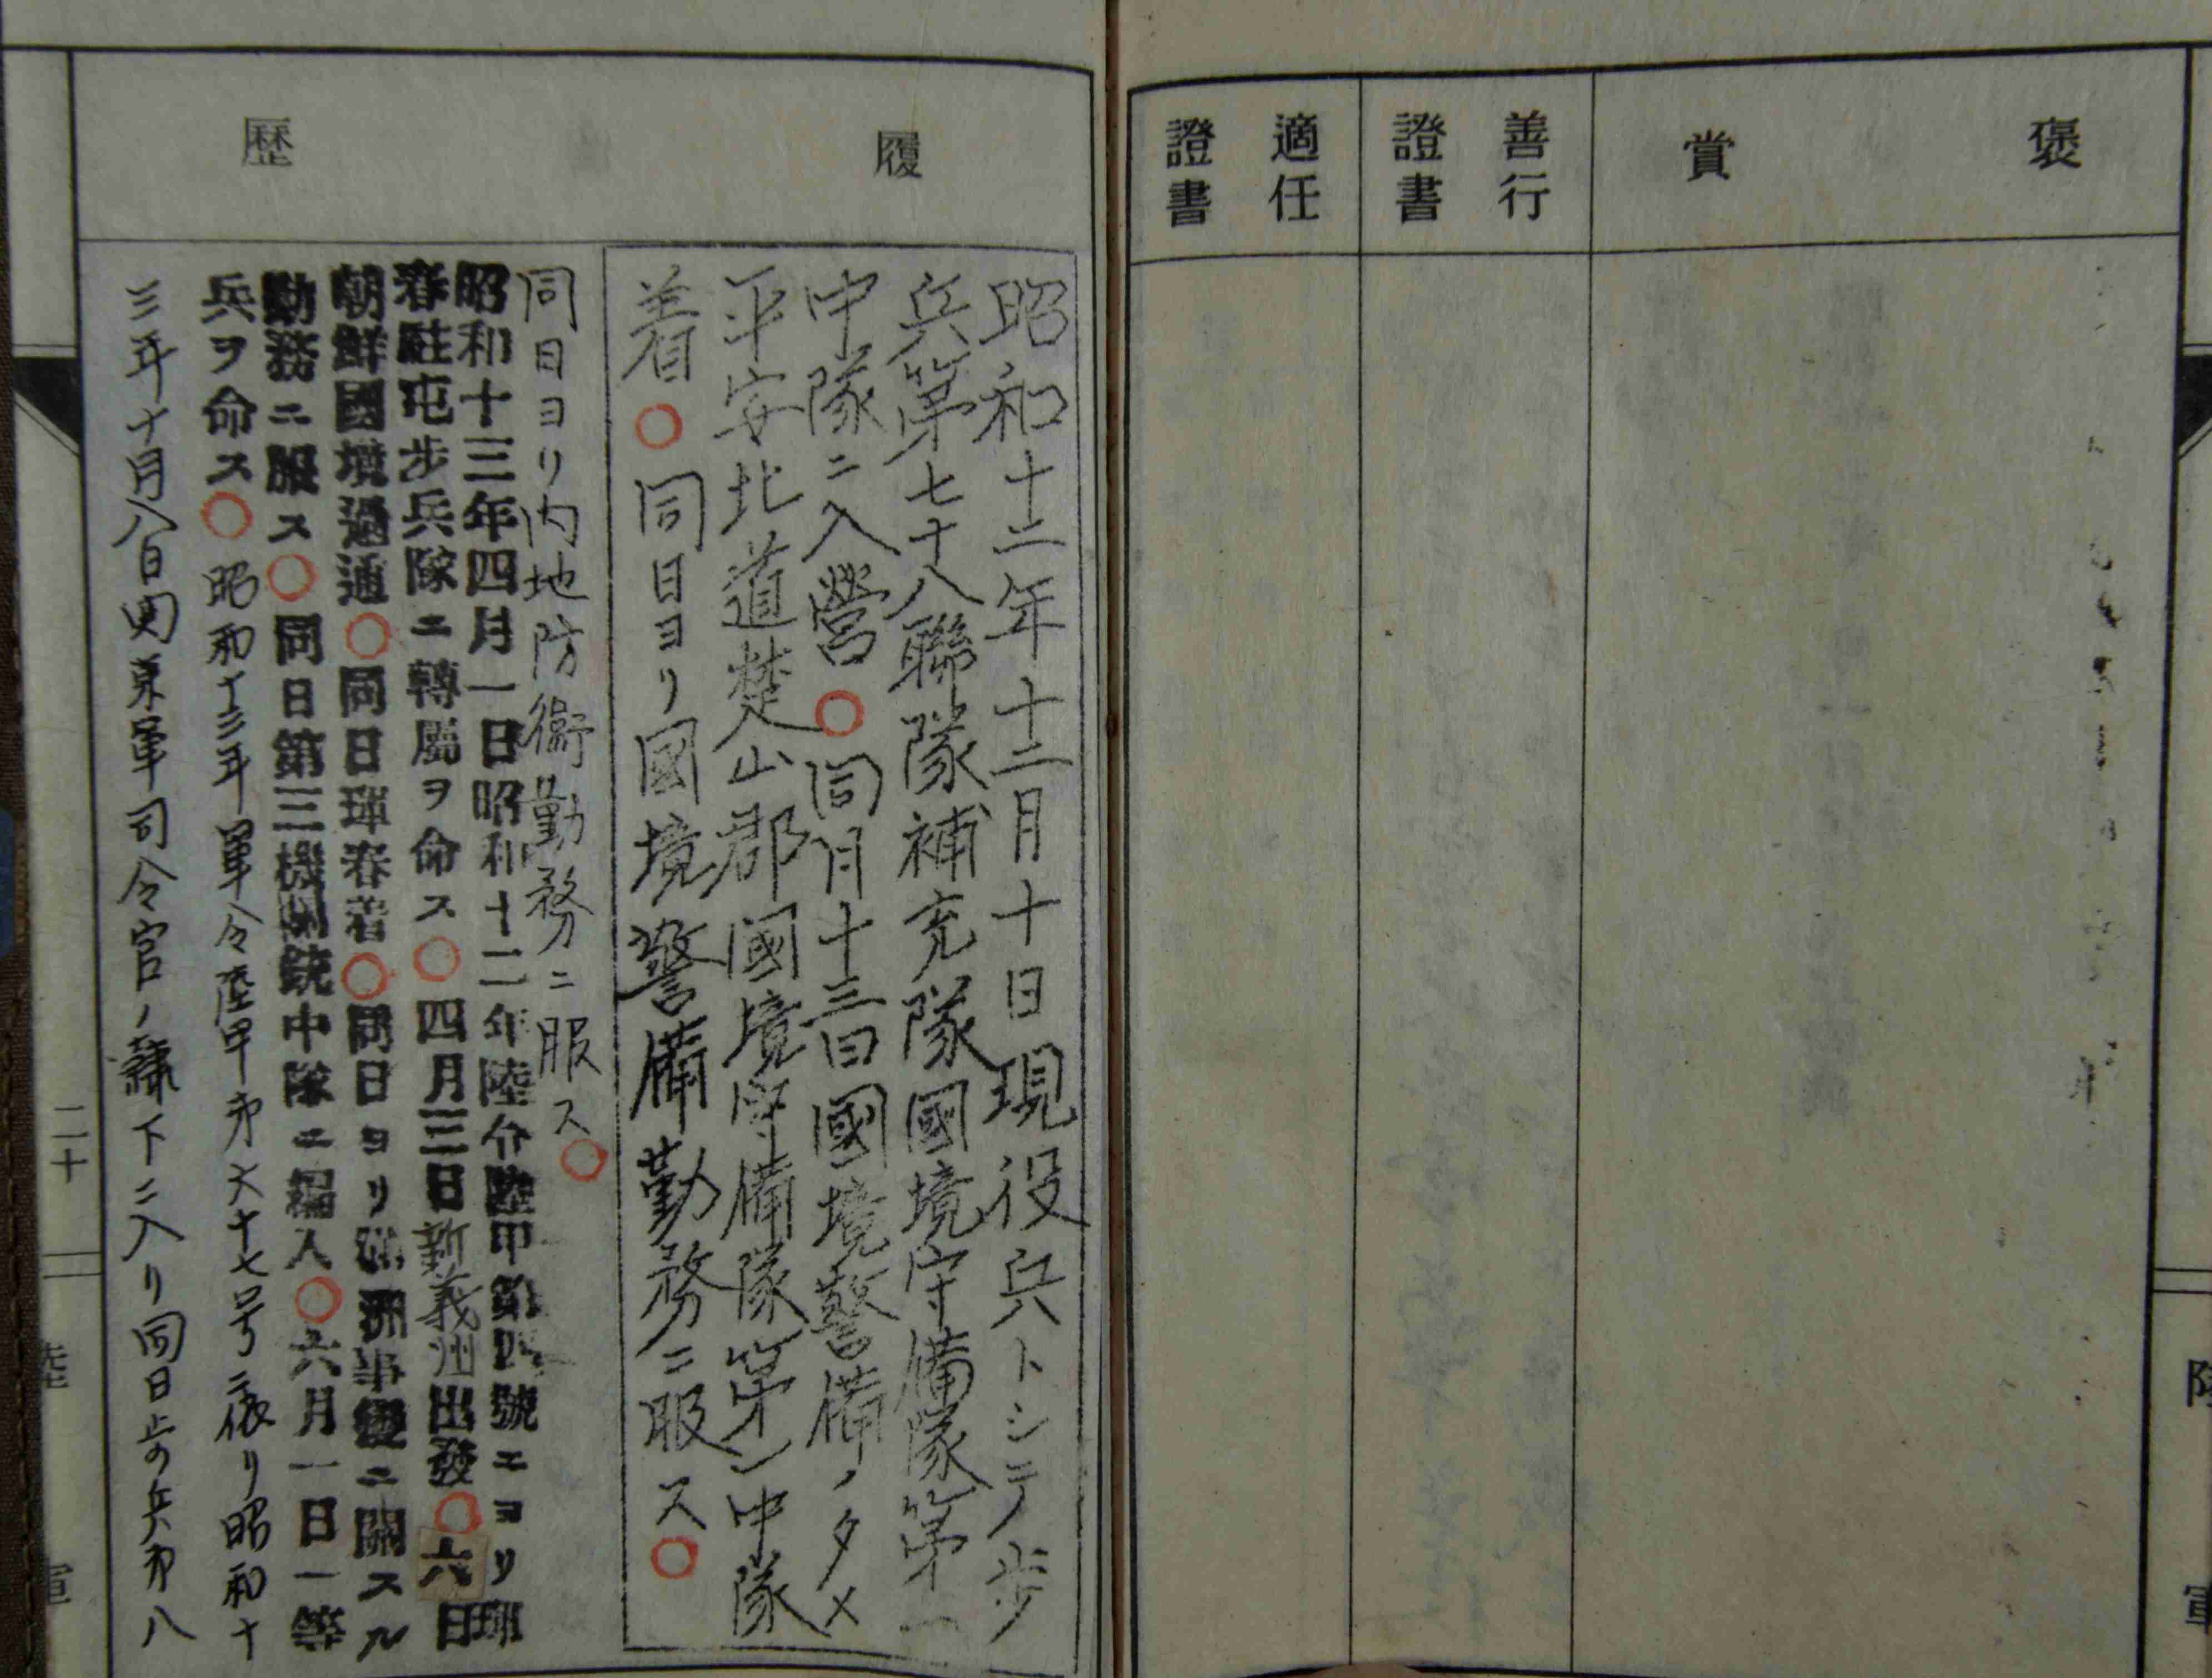 褒賞
善行證書
適任證書
履歷
昭和十二年十二月十日現役兵トシテ歩
兵第七十八聯隊補充隊國境守備隊第一
中隊ニ入營○同月十三日國境警備ノタメ
平安北道楚山郡國境守備隊第一中隊
着○同日ヨリ國境警備勤務ニ服ス○
同日ヨリ内地防衞勤務ニ服ス○
昭和十三年四月一日昭和十二年陸令陸甲第四號エヨリ琿
春駐屯步兵隊ニ轉屬ヲ命ス○四月三日新義州出發○六日
朝鮮國境通過○同日琿春着○同日ヨリ満洲事變ニ關スル
勤務ニ服ス○同日第三機關銃中隊ニ編入○六月一日一等
兵ヲ命ス○昭和十三年軍令陸甲第六十七号ニ依リ昭和十
三年十月八日関東軍司令官ノ隷下ニ入リ同日歩兵第八
二十
陸軍